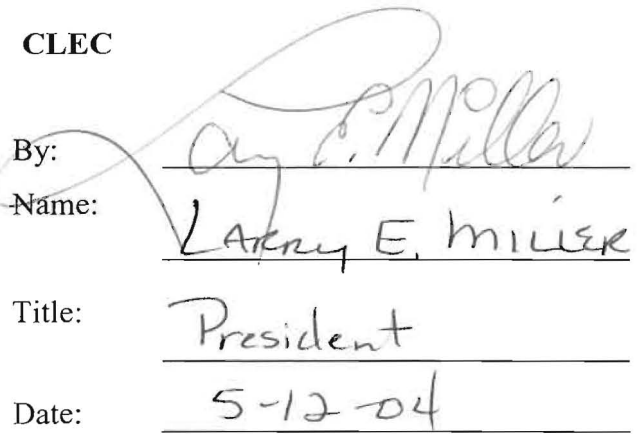 CLEC
By: Larry E. Miller
Name: LARRY E. MILLER
Title: President
Date: 5-12-04